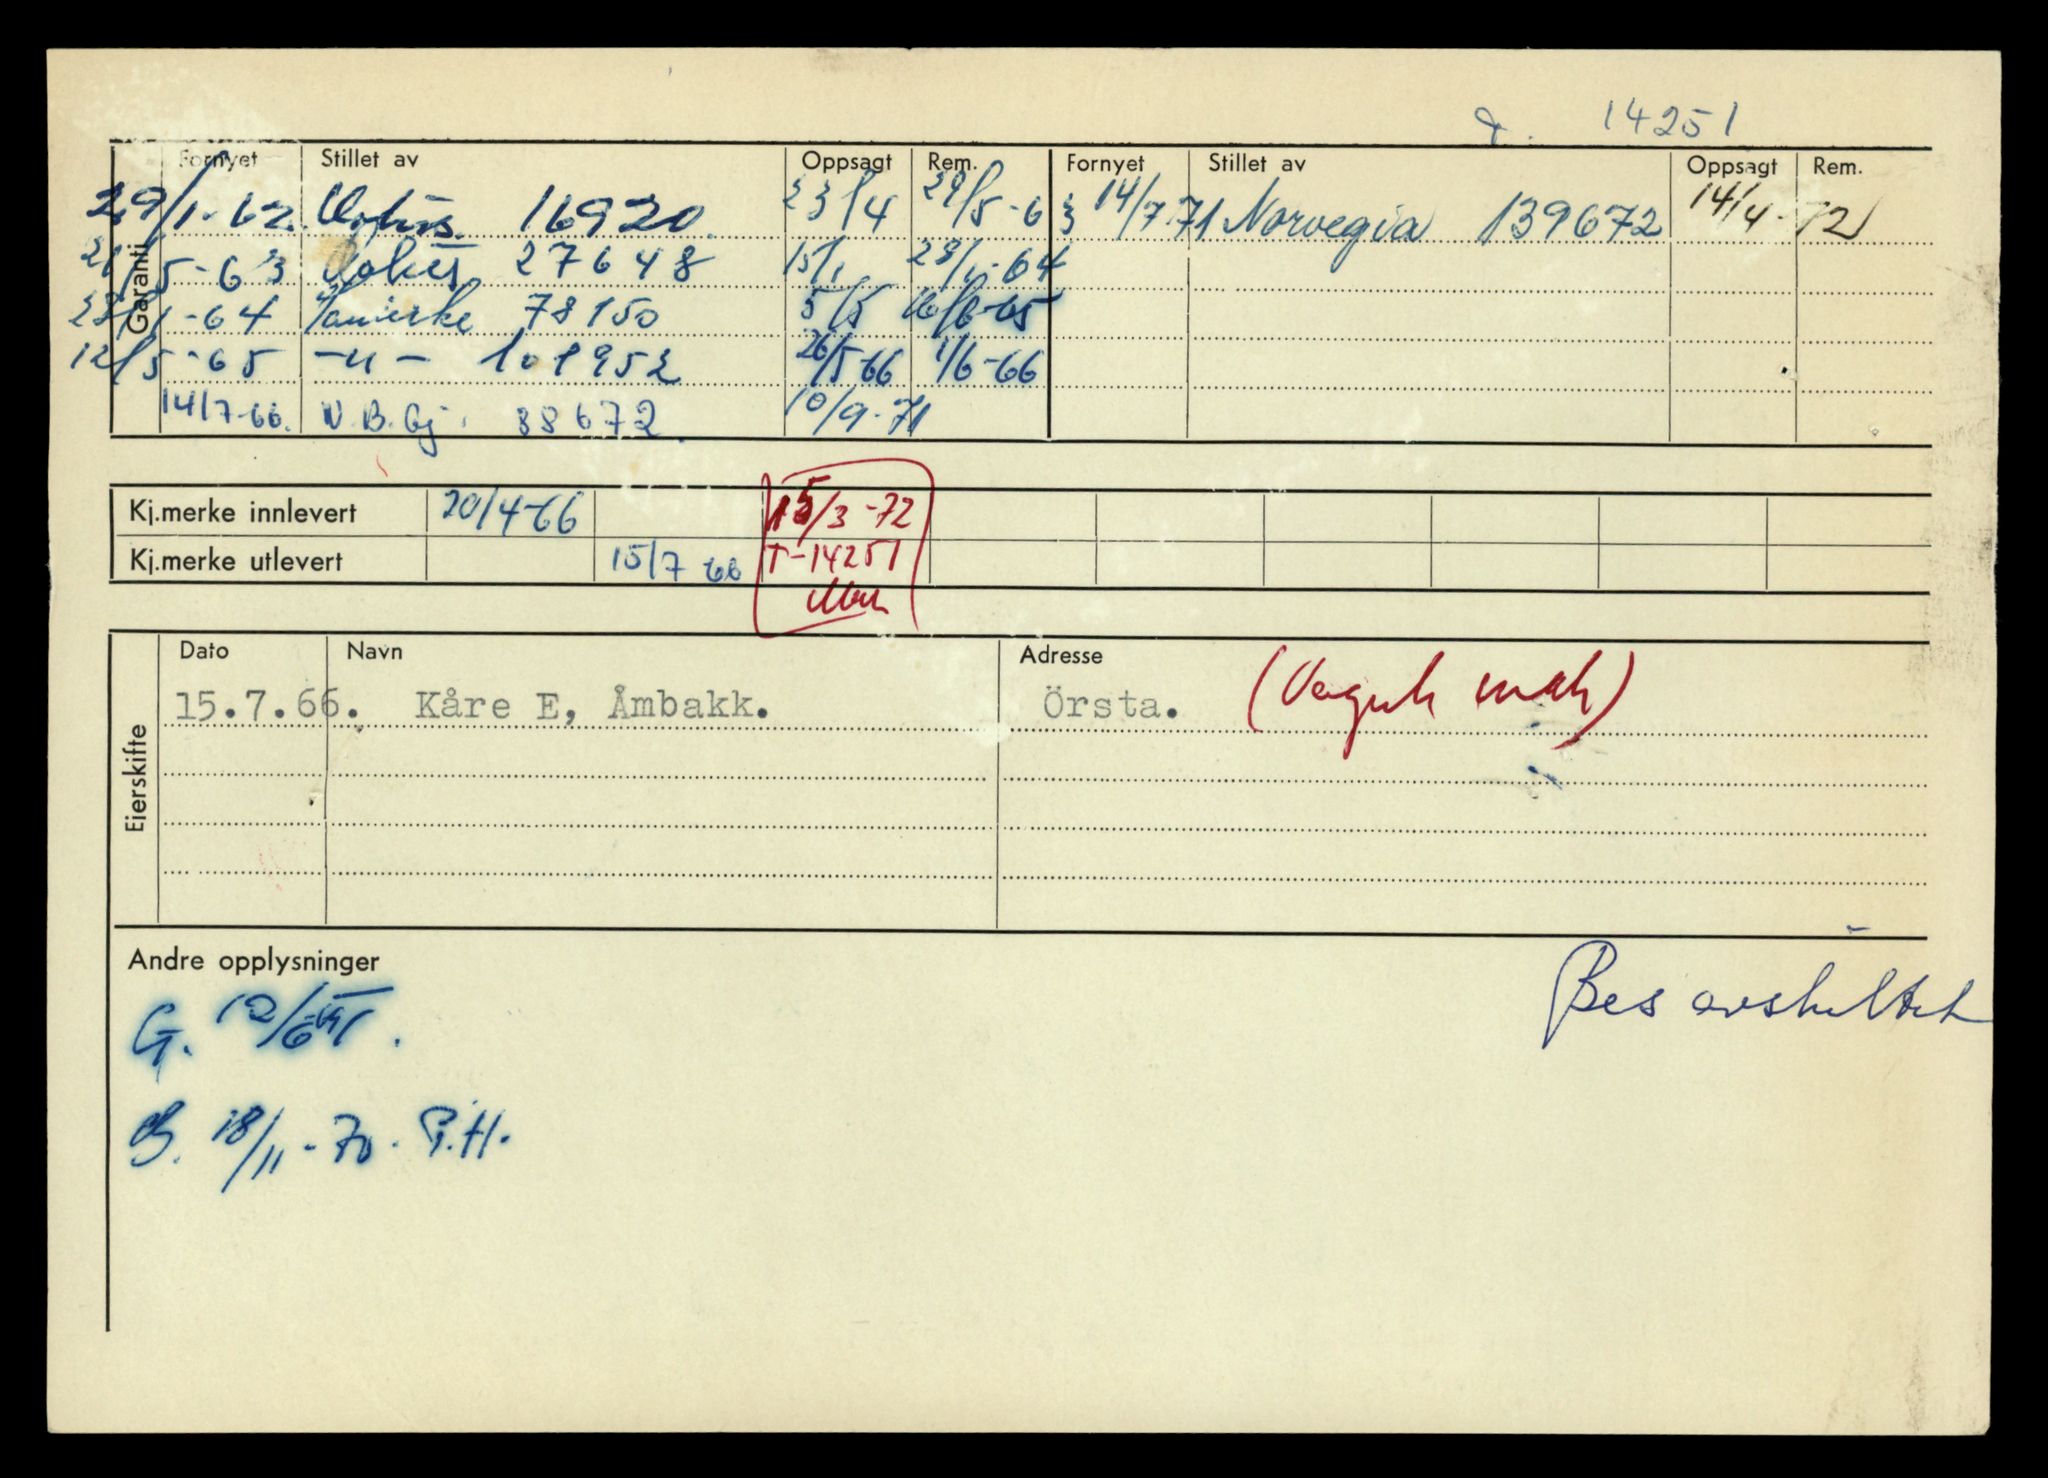 14251
Garanti
Fornyet Stillet av Oppsagt Rem. Fornyet Stillet av Oppsagt Rem.
29/1-62. 16920. 23/4 29/5-63 14/7.71 Norvegia 139672 14/4-72
21/5-63 27648 15/1 28/1-64
28/1-64 78150 5/5 16/6-65
12/5-65 -"- 101952 26/5-66 1/6-66
14/7-66. N.B.Gj. 88672. 10/9-71
Kj.merke innlevert 20/4-66 15/3-72
Kj.merke utlevert 15/7 66 T-14251
Eierskifte
Dato Navn Adresse
15.7.66. Kåre E, Åmbakk. Örsta.
Andre opplysninger
Bes avskiltet
G. 12/6
18/11-70. P.H.